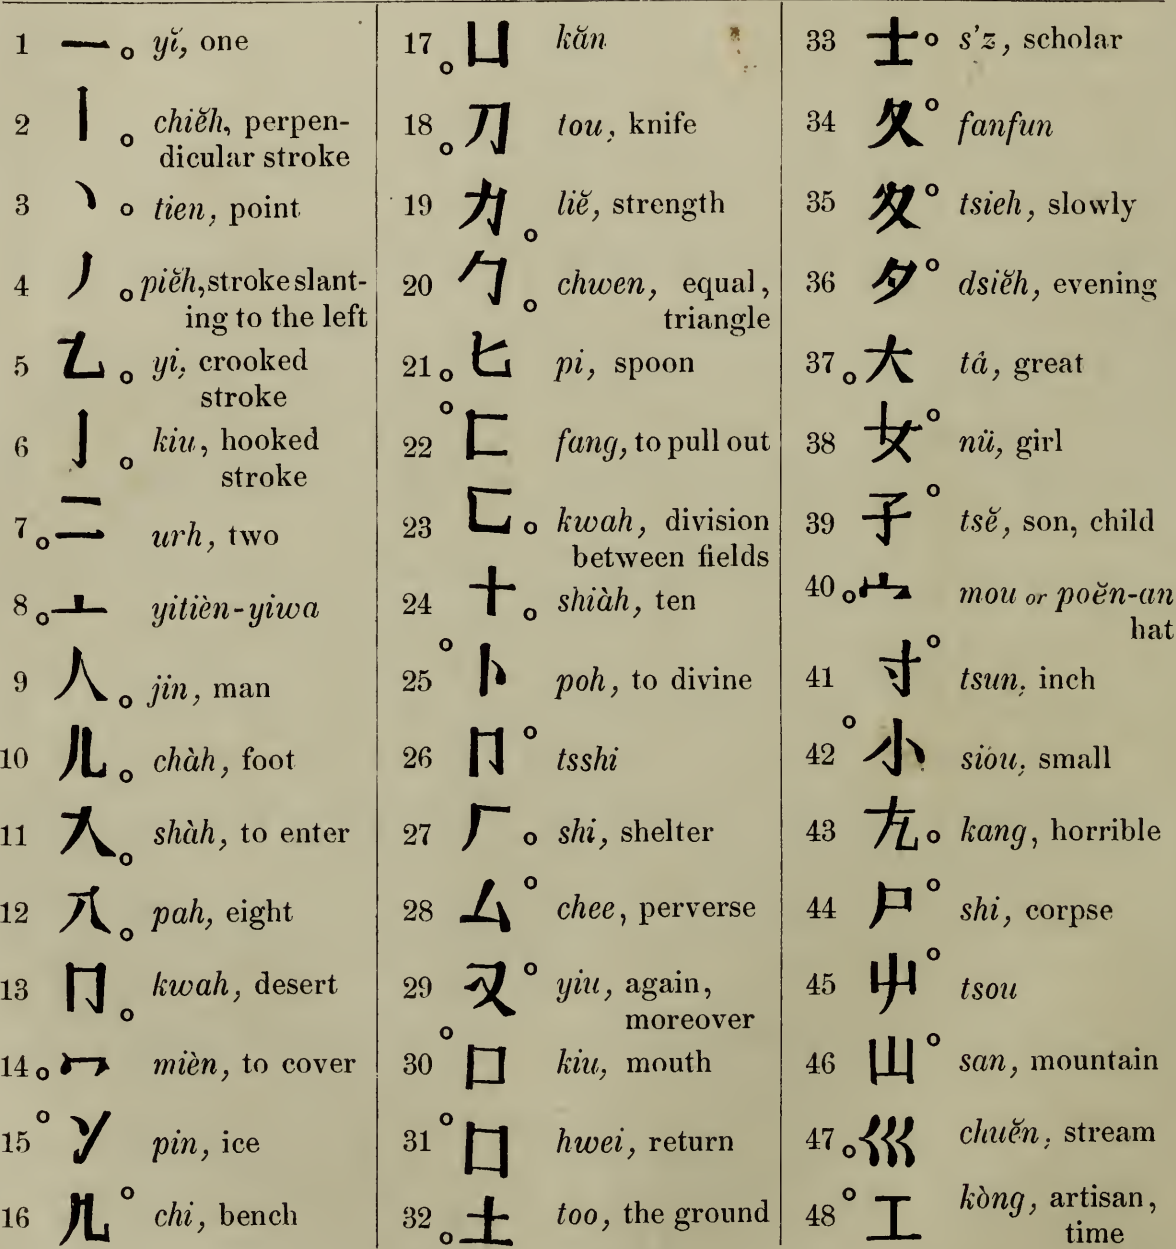 1 一 yĭ, one
2 丨 chiĕh, perpen-
dicular stroke
3 丶 tien, point
4 丿 piĕh, stroke slant-
ing to the left
5 乙 yi, crooked
stroke
6 亅 kiu, hooked
stroke
7 二 urh, two
8 亠 yitièn-yiwa
9 人 jin, man
10 儿 chàh, foot
11 入 shàh, to enter
12 八 pah, eight
13 冂 kwah, desert
14 冖 mièn, to cover
15 冫 pin, ice
16 几 chi, bench
17 凵 kăn
18 刀 tou, knife
19 力 liĕ, strength
20 勹 chwen, equal,
triangle
21 匕 pi, spoon
22 匚 fang, to pull out
23 匸 kwah, division
between fields
24 十 shiàh, ten
25 卜 poh, to divine
26 卩 tsshi
27 厂 shi, shelter
28 厶 chee, perverse
29 又 yiu, again,
moreover
30 口 kiu, mouth
31 囗 hwei, return
32 土 too, the ground
33 士 s'z, scholar
34 夂 fanfun
35 夊 tsieh, slowly
36 夕 dsiĕh, evening
37 大 tá, great
38 女 nü, girl
39 子 tsĕ, son, child
40 宀 mou or poĕn-an
hat
41 寸 tsun, inch
42 小 siou, small
43 尢 kang, horrible
44 尸 shi, corpse
45 屮 tsou
46 山 san, mountain
47 巛 chuĕn, stream
48 工 kòng, artisan,
time